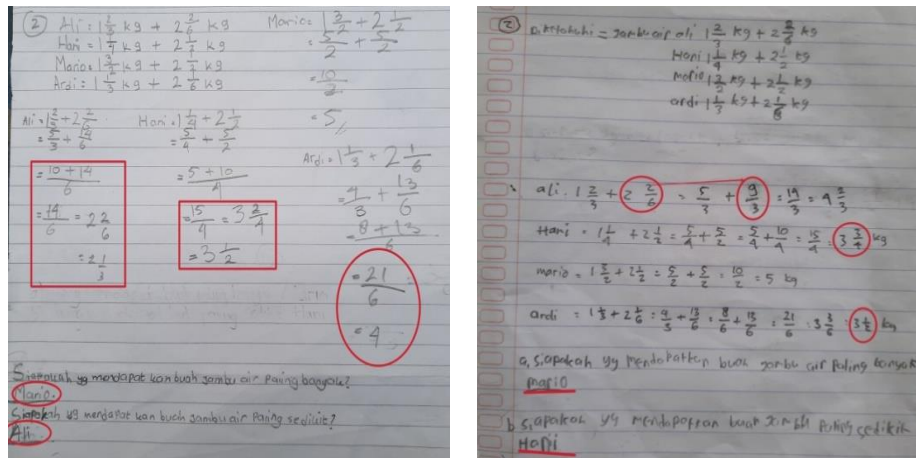 ② Ali = 1 2/3 kg + 2 2/6 kg
Hani = 1 1/4 kg + 2 1/2 kg
Mario = 1 3/2 kg + 2 1/2 kg
Ardi = 1 1/3 kg + 2 1/6 kg
Ali = 1 2/3 + 2 2/6
= 5/3 + 14/6
= 10 + 14/6
= 14/6 = 2 2/6
= 2 1/3
Hani = 1 1/4 + 2 1/2
= 5/4 + 5/2
= 5 + 10/4
= 15/4 = 3 2/4
= 3 1/2
Mario = 1 3/2 + 2 1/2
= 5/2 + 5/2
= 10/2
= 5
Ardi = 1 1/3 + 2 1/6
= 4/3 + 13/6
= 8 + 13/6
= 21/6
= 4
Siapakah yg mendapat kan buah jambu air paling banyak?
Mario.
Siapakah yg mendapat kan buah jambu air paling sedikit?
Ali.
② Diketahui = jambu air ali 1 2/3 kg + 2 2/6 kg
Hani 1 1/4 kg + 2 1/2 kg
mario 1 3/2 kg + 2 1/2 kg
ardi 1 1/3 kg + 2 1/6
ali. 1 2/3 + 2 2/6 = 5/3 + 9/3 = 19/3 = 4 3/3
Hani = 1 1/4 + 2 1/2 = 5/4 + 5/2 = 5/4 + 10/4 = 15/4 = 3 3/4 kg
mario = 1 3/2 + 2 1/2 = 5/2 + 5/2 = 10/2 = 5 kg
ardi = 1 1/3 + 2 1/6 = 4/3 + 13/6 = 8/6 + 13/6 = 21/6 = 3 3/6 = 3 1/2 kg
a. siapakah yg mendapatkan buah jambu air paling banyak
mario
b siapakah yg mendapatkan buah jambu paling sedikit
Hani